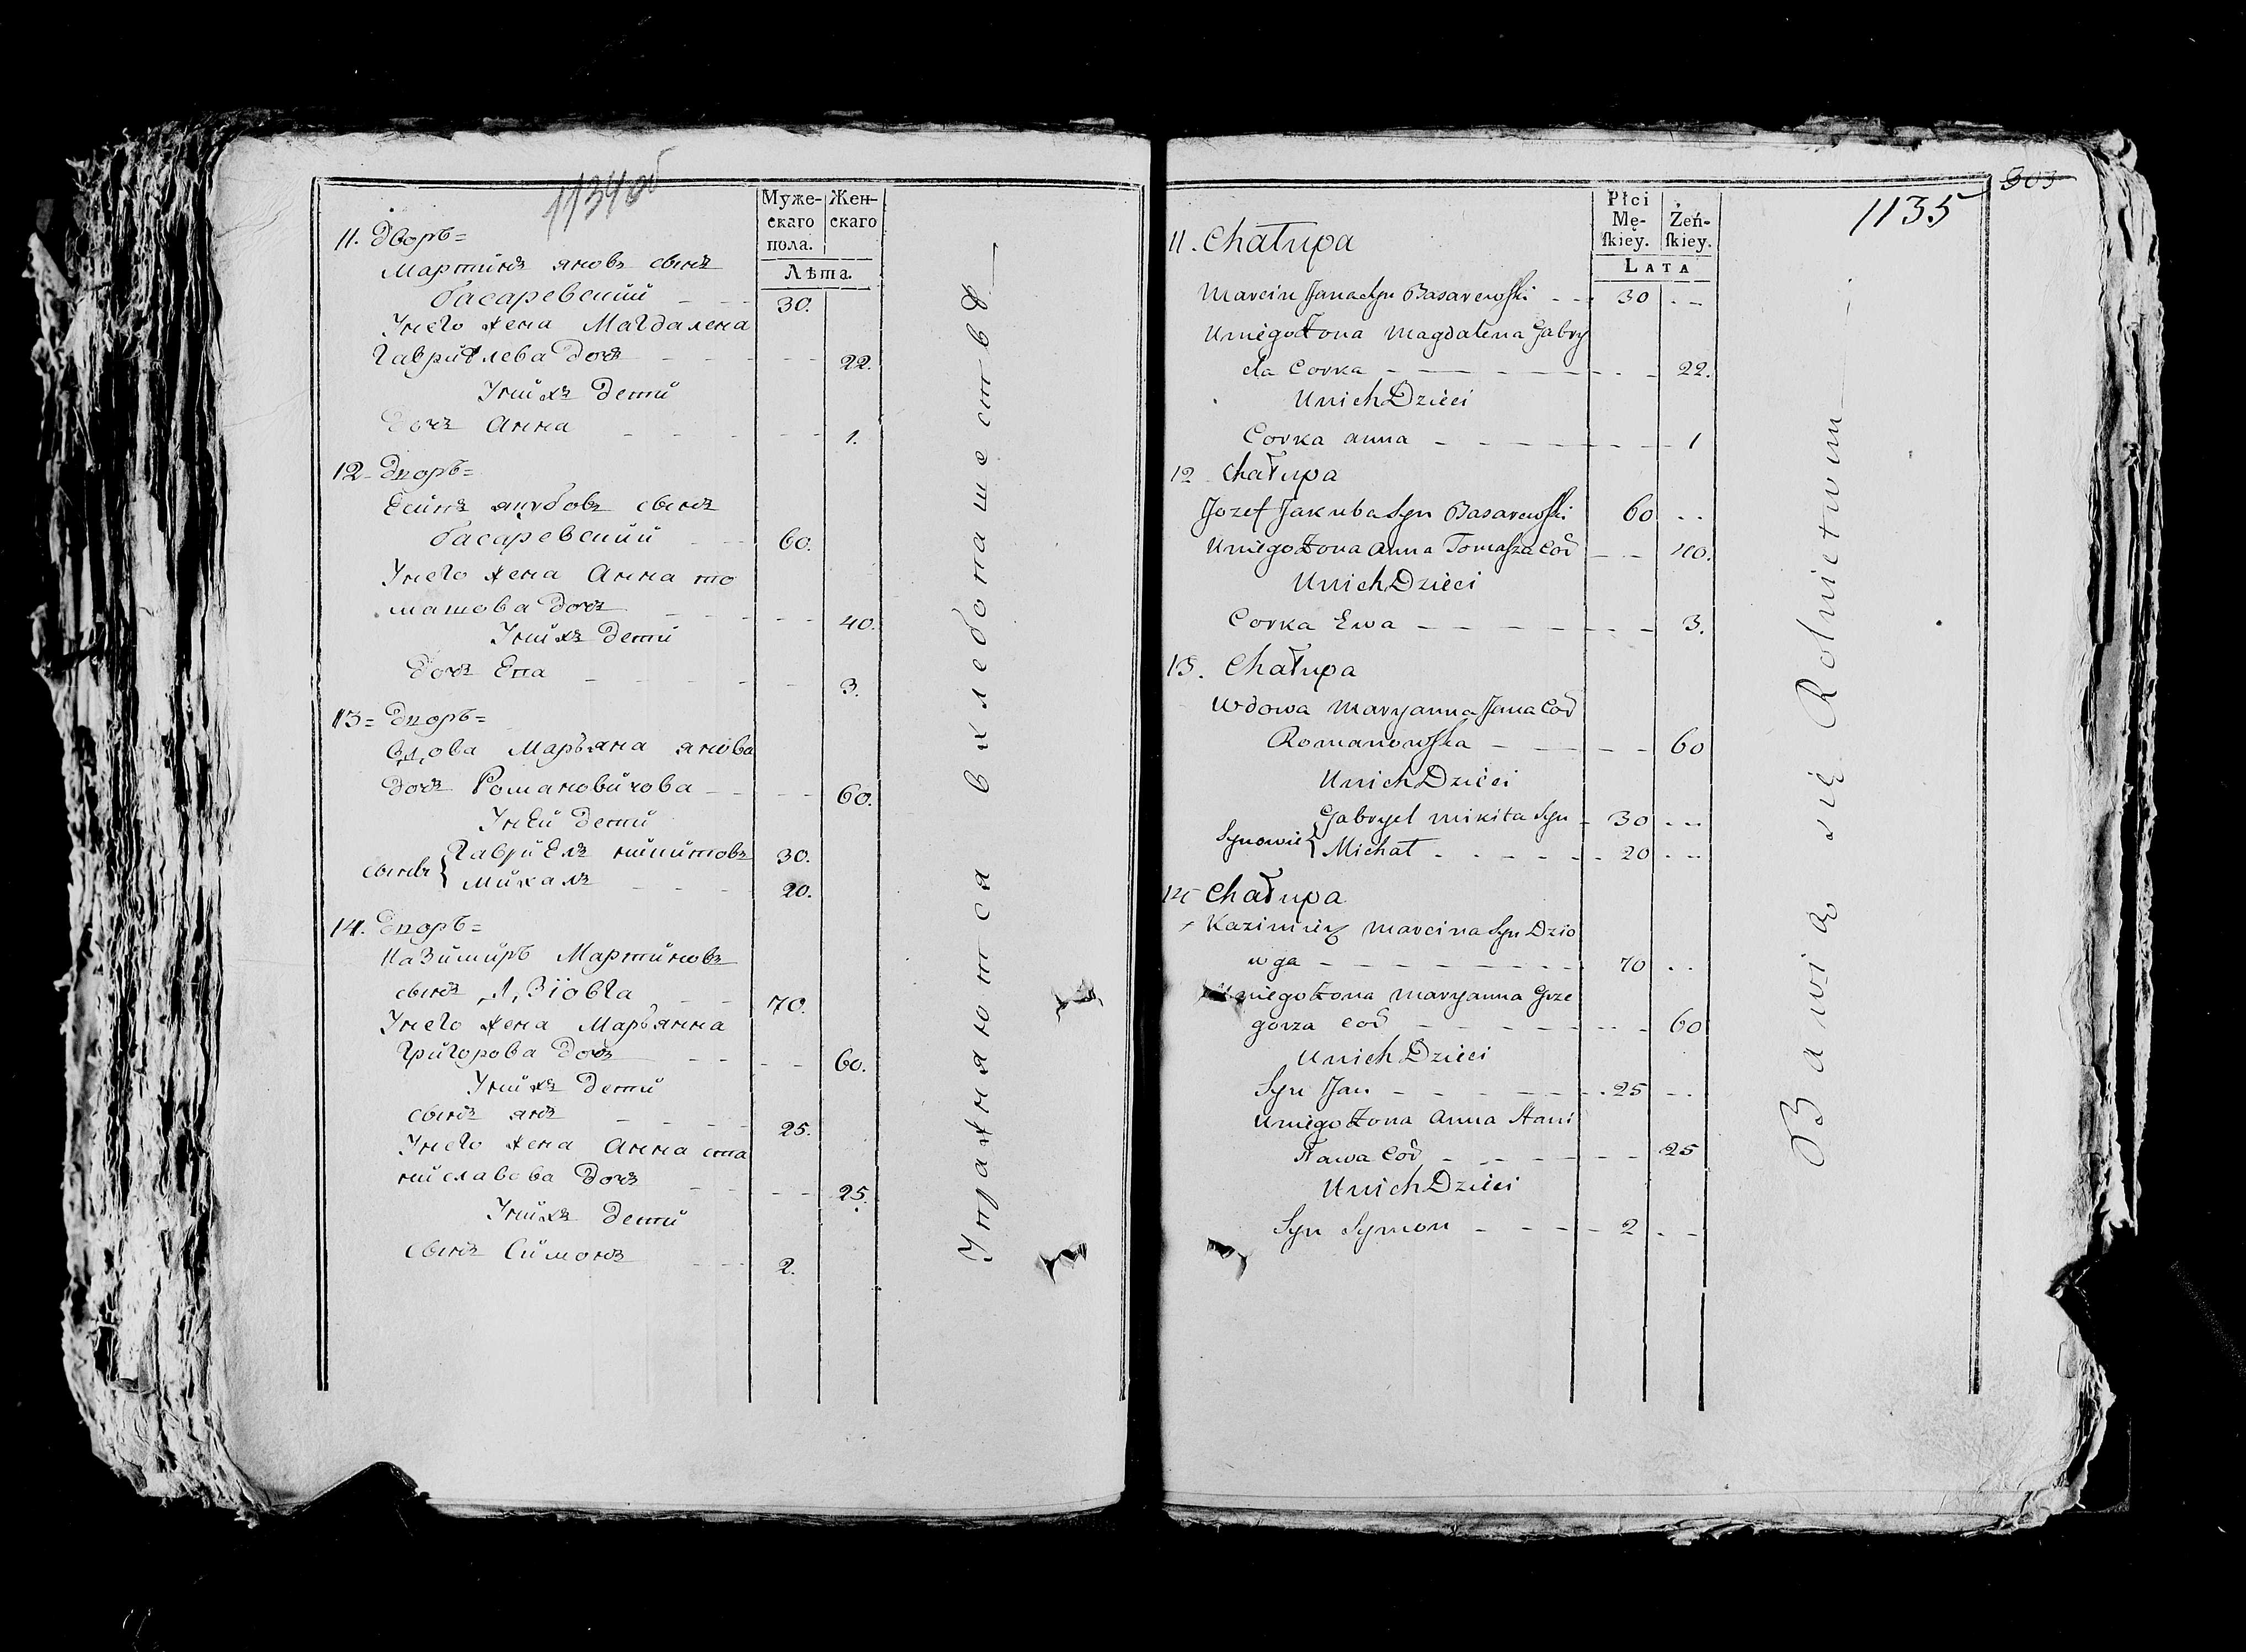 1134об
Муже-
скаго
пола.
Жен-
скаго
Лѣта.
11. Дворъ=
Мартинъ яновъ сынъ
басаревский - - 30.
Унего жена Магдалена
Гаврилева дочь - - - 22.
Унихъ дети
Дочь Анна - - - 1.
12. Дворъ=
Есинъ якубовъ сынъ
басаревский - - 60.
Унего жена Анна то
машова дочь - - - 40.
Унихъ дети
Дочь Ева - - - 3.
13= Дворъ=
Вдова Марьяна янова
дочь Романовичова - - - 60.
Уней дети
сыны { Гавриелъ никитовъ 30.
Михалъ - - - 20.
14. Дворъ=
Казимиръ Мартиновъ
сынъ Дзіовга - - 70.
Унего жена Марьянна
Григорова дочь - - - 60.
Унихъ дети
сынъ янъ - - - 25.
Унего жена Анна ста
ниславова дочь - - - 25.
Унихъ дети
сынъ Симонъ - - 2.
Упражняются в хлебопашестве
303
1135
Płci
Mę-
skiey.
Żeń-
skiey.
LATA
11. Chałupa
Marcin Jana Syn Basarewski - - 30 - -
Uniego Żona Magdalena Gabry
ela Corka - - - 22.
Unich Dzieci
Corka Anna - - - 1
12 Chałupa
Jozef Jakuba Syn Basarewski 60 - -
Uniego Żona Anna Tomasza Cor - - 40.
Unich Dzieci
Corka Ewa - - - 3.
13. Chałupa
Wdowa Maryanna Jana Cor
Romanowska - - - 60
Unich Dzieci
Synowie { Gabryel Mikita Syn - 30 - -
Michał - - - 20 - -
14 Chałupa
Kazimierz Marcina Syn Dzio
wga - - - 70 - -
Uniego Żona Maryanna Grze
gorza Cor - - - 60
Unich Dzieci
Syn Jan - - - 25 - -
Uniego Żona Anna Stani
sława Cor - - - 25
Unich Dzieci
Syn Symon - - - 2 - -
Bawią się Rolnictwem